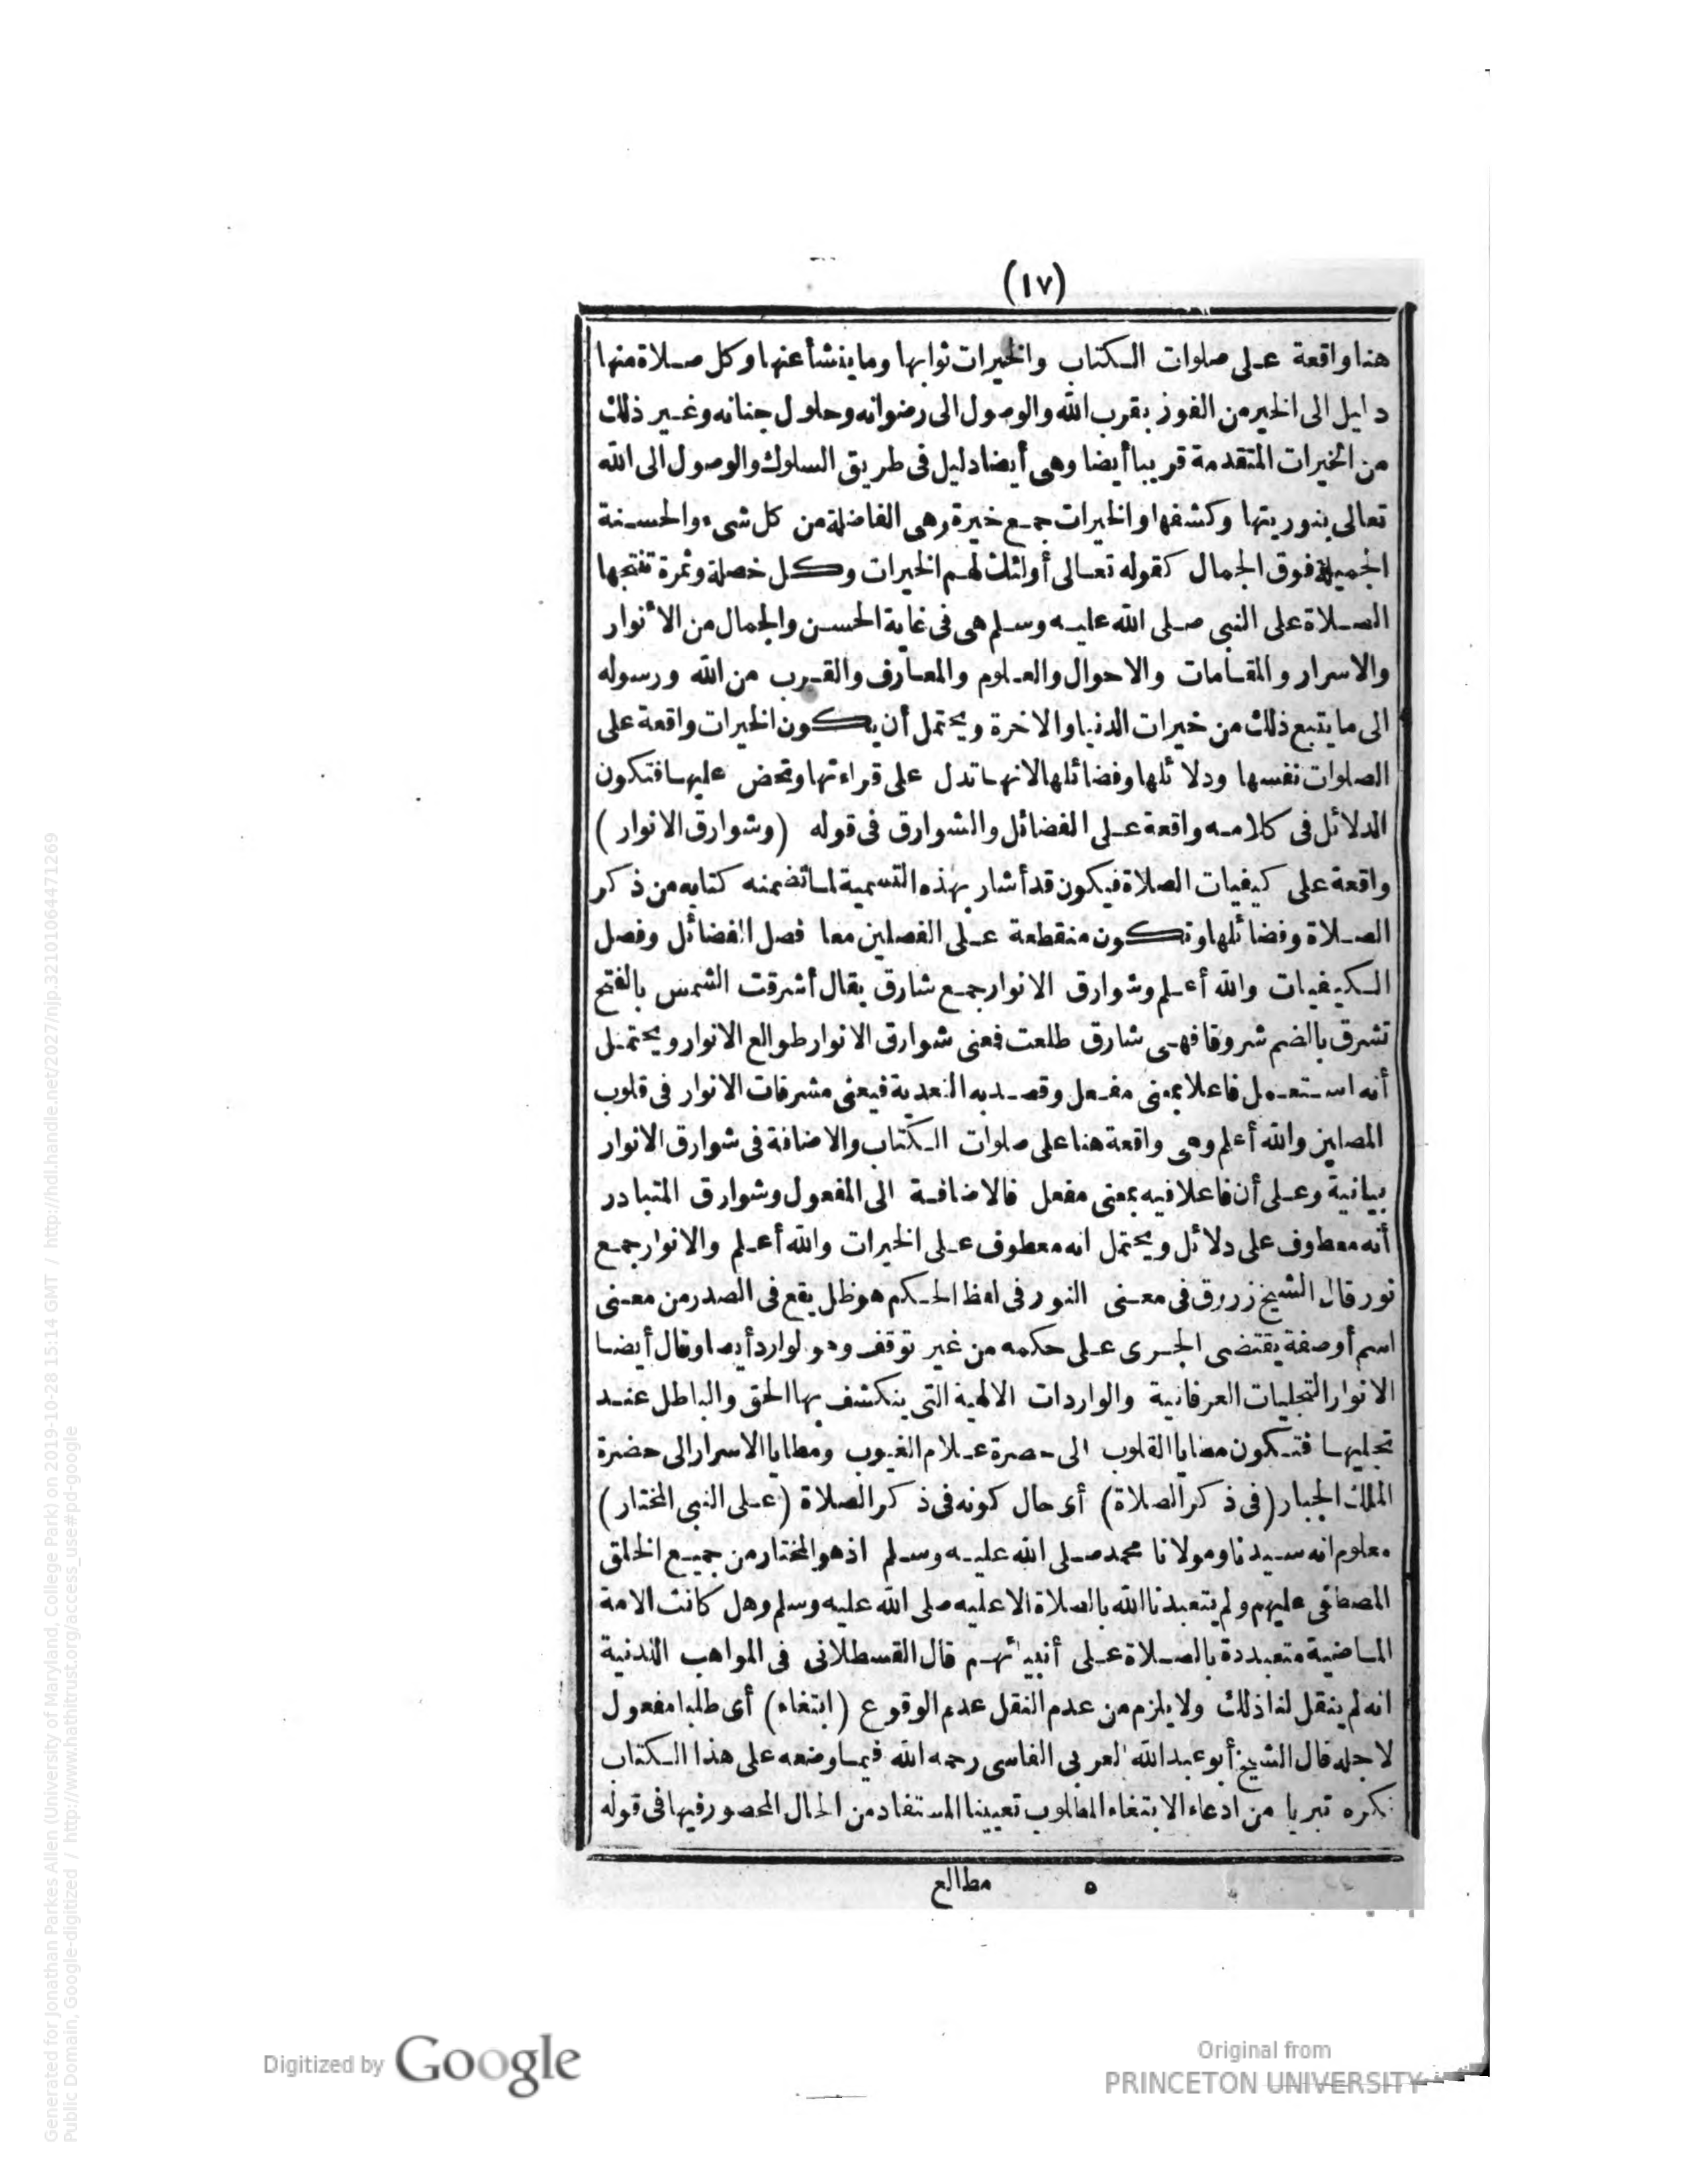 (١٧)
هنا واقعة على صلوات الكتاب والخيرات ثوابها وما ينشأ عنها وكل صلاة منها
دليل الى الخير من الفوز بقرب الله والوصول الى رضوانه وحلول جنانه وغير ذلك
من الخيرات المتقدمة قريبا أيضا وهى أيضا دليل فى طريق السلوك والوصول الى الله
تعالى بنوريتها وكشفها والخيرات جمع خيرة وهى الفاضلة من كل شىء والحسنة
الجميلة فوق الجمال كقوله تعالى أولئك لهم الخيرات وكل خصلة وثمرة تنتجها
الصلاة على النبى صلى الله عليه وسلم هى فى غاية الحسن والجمال من الأنوار
والاسرار والمقامات والاحوال والعلوم والمعارف والقرب من الله ورسوله
الى ما يتبع ذلك من خيرات الدنيا والاخرة ويحتمل أن يكون الخيرات واقعة على
الصلوات نفسها ودلائلها وفضائلها لانها تدل على قراءتها وتحض عليها فتكون
الدلائل فى كلامه واقعة على الفضائل والشوارق فى قوله (وشوارق الانوار)
واقعة على كيفيات الصلاة فيكون قد أشار بهذه التسمية لما تضمنه كتابه من ذكر
الصلاة وفضائلها وتكون منقطعة على الفصلين معا فصل الفضائل وفصل
الكيفيات والله أعلم وشوارق الانوار جمع شارق يقال أشرقت الشمس بالفتح
تشرق بالضم شروقا فهى شارق طلعت فمعنى شوارق الانوار طوالع الانوار ويحتمل
أنه استعمل فاعلا بمعنى مفعل وقصد به التعدية فيعنى مشرقات الانوار فى قلوب
المصلين والله أعلم وهى واقعة هنا على صلوات الكتاب والاضافة فى شوارق الانوار
بيانية وعلى أن فاعلا فيه بمعنى مفعل فالاضافة الى المفعول وشوارق المتبادر
أنه معطوف على دلائل ويحتمل انه معطوف على الخيرات والله أعلم والانوار جمع
نور قال الشيخ زروق فى معنى النور فى لفظ الحكم هو ظل يقع فى الصدر من معنى
اسم أو صفة يقتضى الجرى على حكمه من غير توقف وهو لوارد أيضا وقال أيضا
الانوار التجليات العرفانية والواردات الالهية التى ينكشف بها الحق والباطل عند
تجليها فتكون مطايا القلوب الى حضرة علام الغيوب ومطايا الاسرار الى حضرة
الملك الجبار (فى ذكر الصلاة) أى حال كونه فى ذكر الصلاة (على النبى المختار)
معلوم انه سيدنا ومولانا محمد صلى الله عليه وسلم اذ هو المختار من جميع الخلق
المصطفى عليهم ولم يتعبدنا الله بالصلاة الا عليه صلى الله عليه وسلم وهل كانت الامة
الماضية متعبدة بالصلاة على أنبيائهم قال القسطلانى فى المواهب اللدنية
انه لم ينقل لنا ذلك ولا يلزم من عدم النقل عدم الوقوع (ابتغاء) أى طلبا مفعول
لاجله قال الشيخ أبو عبد الله العربى الفاسى رحمه الله فيما وضعه على هذا الكتاب
نكره تبريا من ادعاء الابتغاء المطلوب تعيينا المستفاد من الحال المحصور فيها فى قوله
٥ مطالع
Digitized by Google
Original from
PRINCETON UNIVERSITY
Generated for Jonathan Parkes Allen (University of Maryland, College Park) on 2019-10-28 15:14 GMT / http://hdl.handle.net/2027/njp.32101064471269
Public Domain, Google-digitized / http://www.hathitrust.org/access_use#pd-google